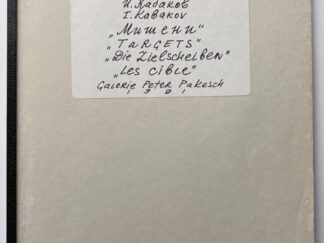 И. Кабаков
I. Kabakov
„Мишени"
„TARGETS"
„Die Zielscheiben"
„Les cible"
Galerie Peter Pakesch